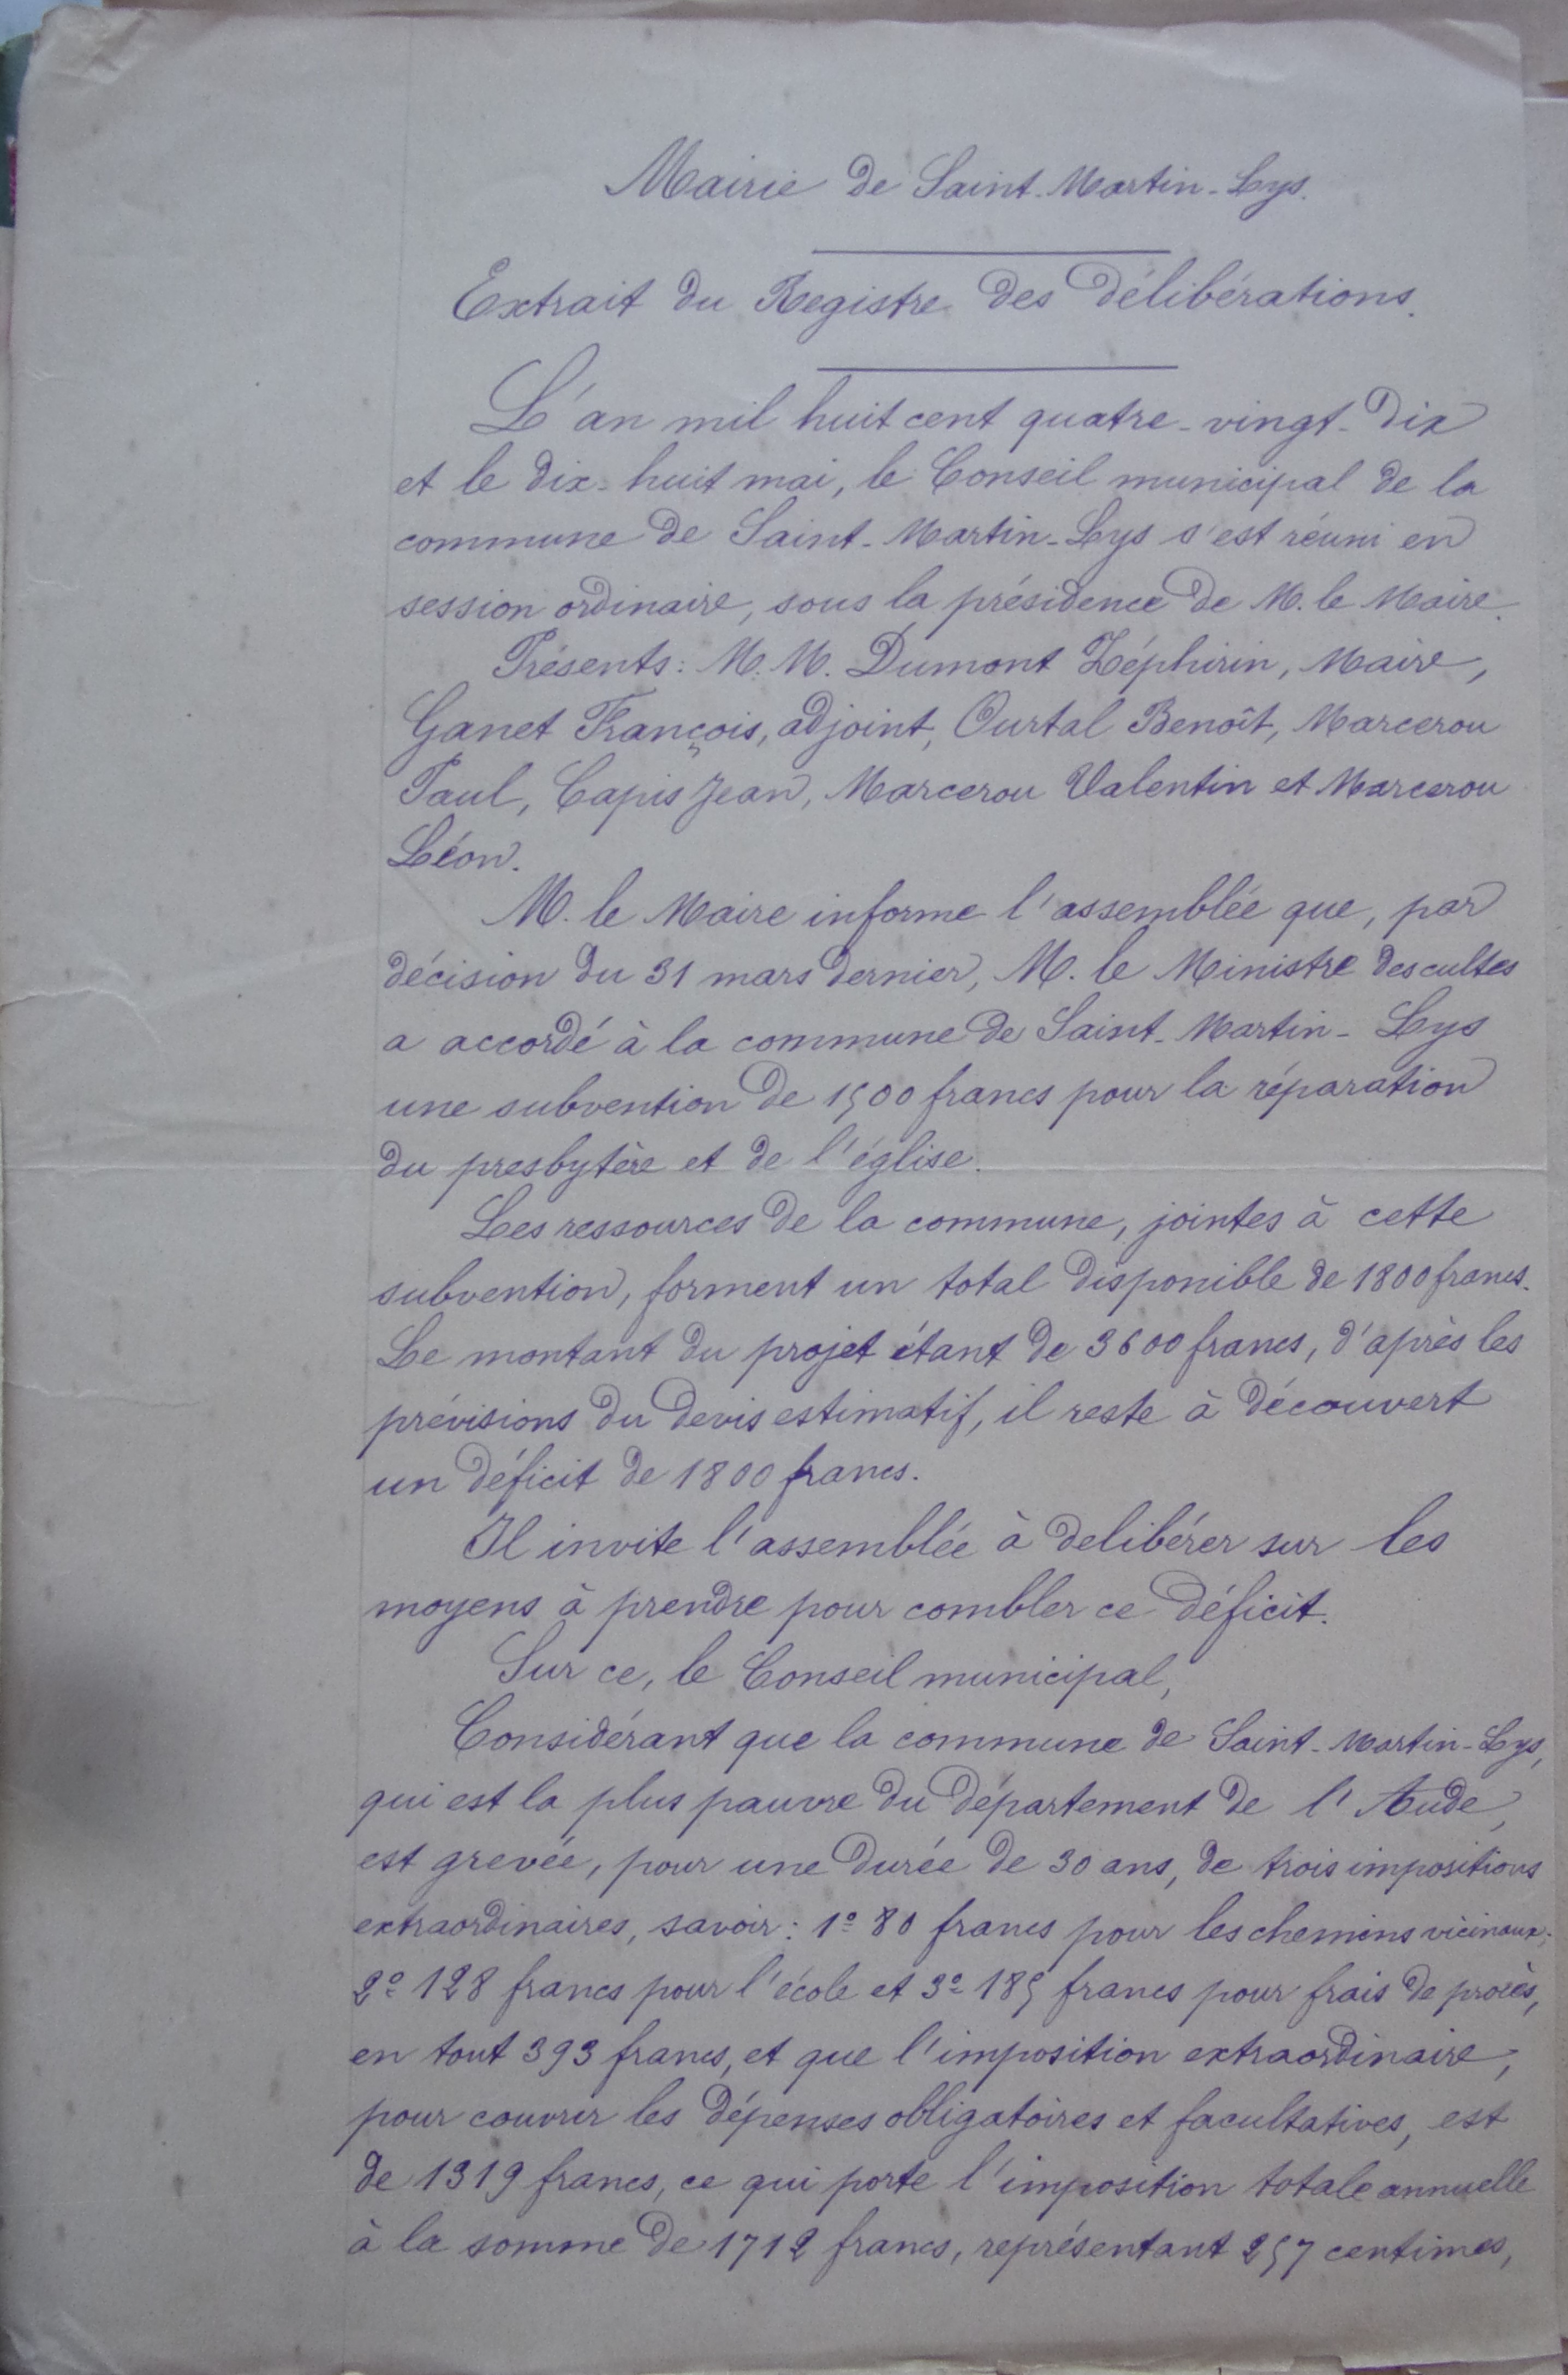 Mairie de Saint-Martin-Lys.
Extrait du Registre des délibérations.
L'an mil huit cent quatre-vingt-dix
et le dix-huit mai, le Conseil municipal de la
commune de Saint-Martin-Lys s'est réuni en
session ordinaire, sous la présidence de M. le Maire.
Présents: M.M. Dumont Zéphirin, Maire,
Ganet François, adjoint, Ourtal Benoît, Marcerou
Paul, Capis Jean, Marcerou Valentin et Marcerou
Léon.
M. le Maire informe l'assemblée que, par
décision du 31 mars dernier, M. le Ministre des cultes
a accordé à la commune de Saint-Martin-Lys
une subvention de 1500 francs pour la réparation
du presbytère et de l'église.
Les ressources de la commune, jointes à cette
subvention, forment un total disponible de 1800 francs.
Le montant du projet étant de 3600 francs, d'après les
prévisions du devis estimatif, il reste à découvert
un déficit de 1800 francs.
Il invite l'assemblée à delibérer sur les
moyens à prendre pour combler ce déficit.
Sur ce, le Conseil municipal,
Considérant que la commune de Saint-Martin-Lys,
qui est la plus pauvre du département de l'Aude,
est grevée, pour une durée de 30 ans, de trois impositions
extraordinaires, savoir: 1º 80 francs pour les chemins vicinaux;
2º 128 francs pour l'école et 3º 185 francs pour frais de procès,
en tout 393 francs, et que l'imposition extraordinaire,
pour couvrir les dépenses obligatoires et facultatives, est
de 1319 francs, ce qui porte l'imposition totale annuelle
à la somme de 1712 francs, représentant 257 centimes,